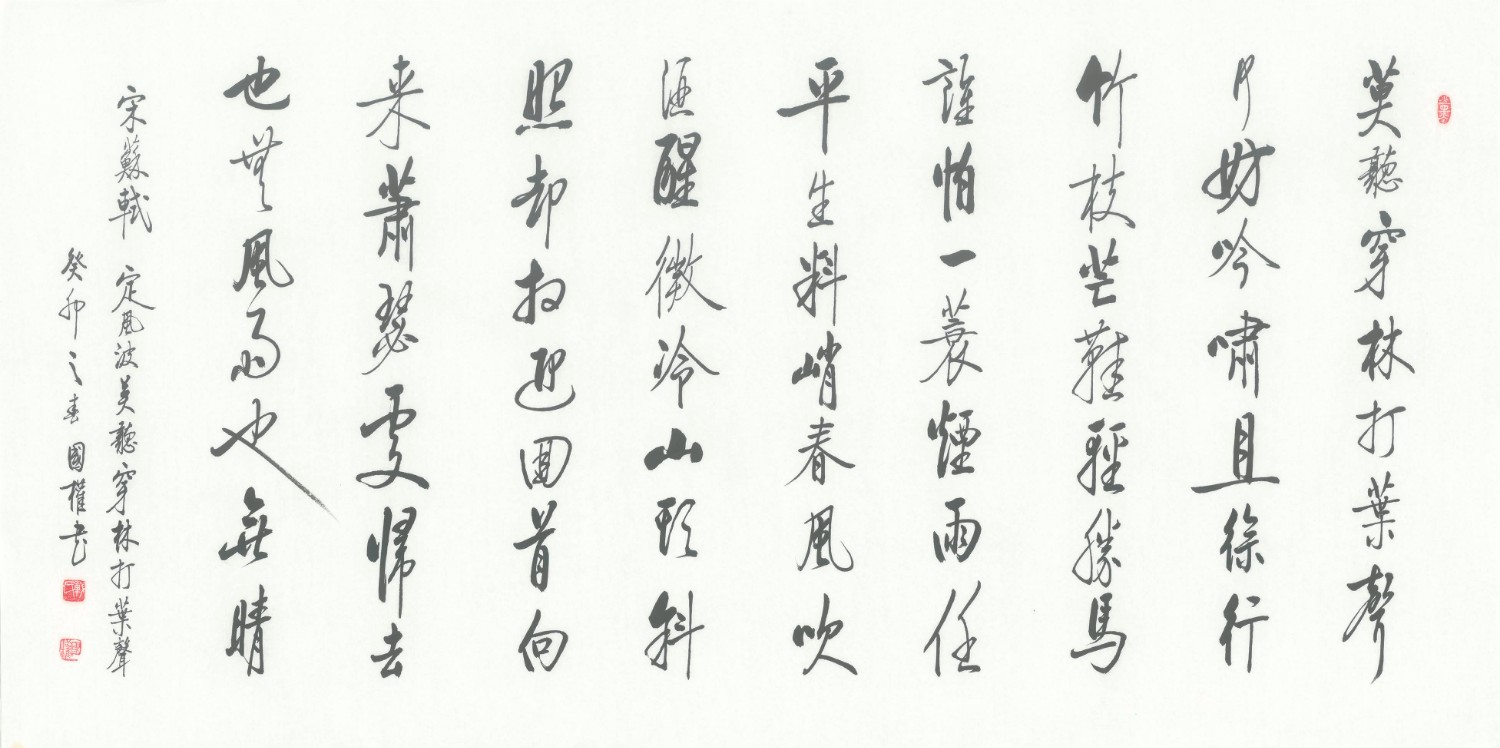 莫聽穿林打葉聲
何妨吟嘯且徐行
竹枝芒鞋輕勝馬
誰怕一蓑煙雨任
平生料峭春風吹
酒醒微冷山頭斜
照却相迎回首向
来蕭瑟處歸去
也無風雨也無晴
宋蘇軾 定風波莫聽穿林打葉聲
癸卯之春國權书